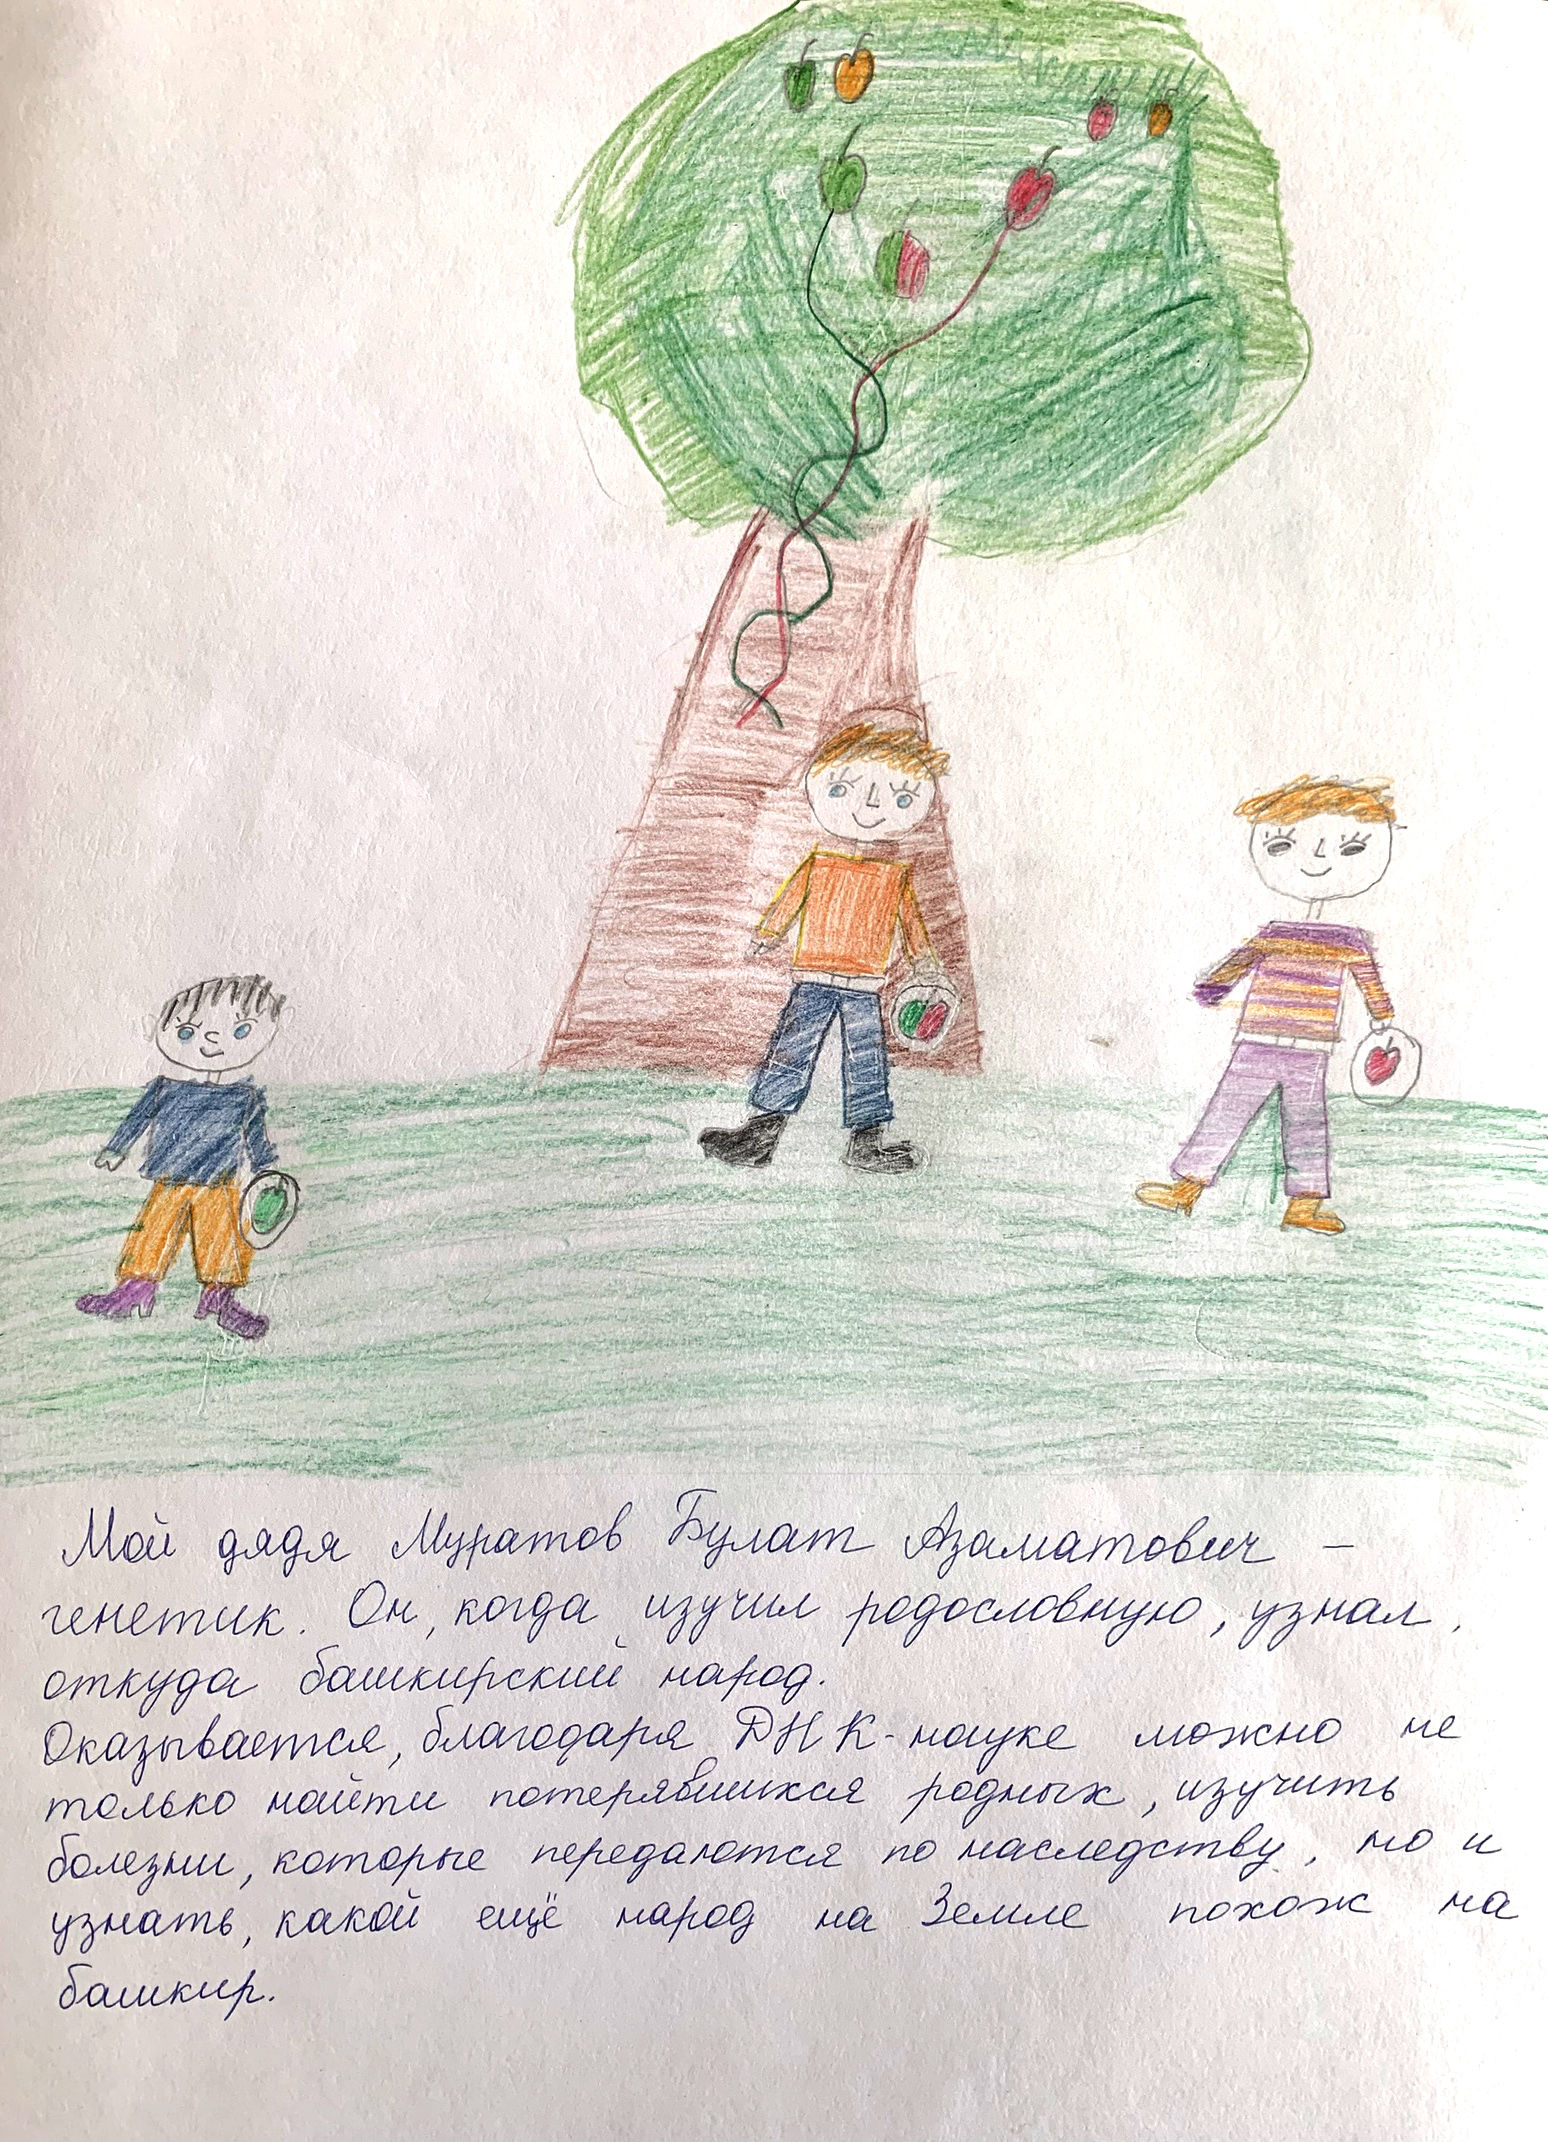 Мой дядя Муратов Булат Азаматович –
генетик. Он, когда изучил родословную, узнал,
откуда башкирский народ.
Оказывается, благодаря ДНК-науке можно не
только найти потерявшихся родных, изучить
болезни, которые передаются по наследству, но и
узнать, какой ещё народ на Земле похож на
башкир.